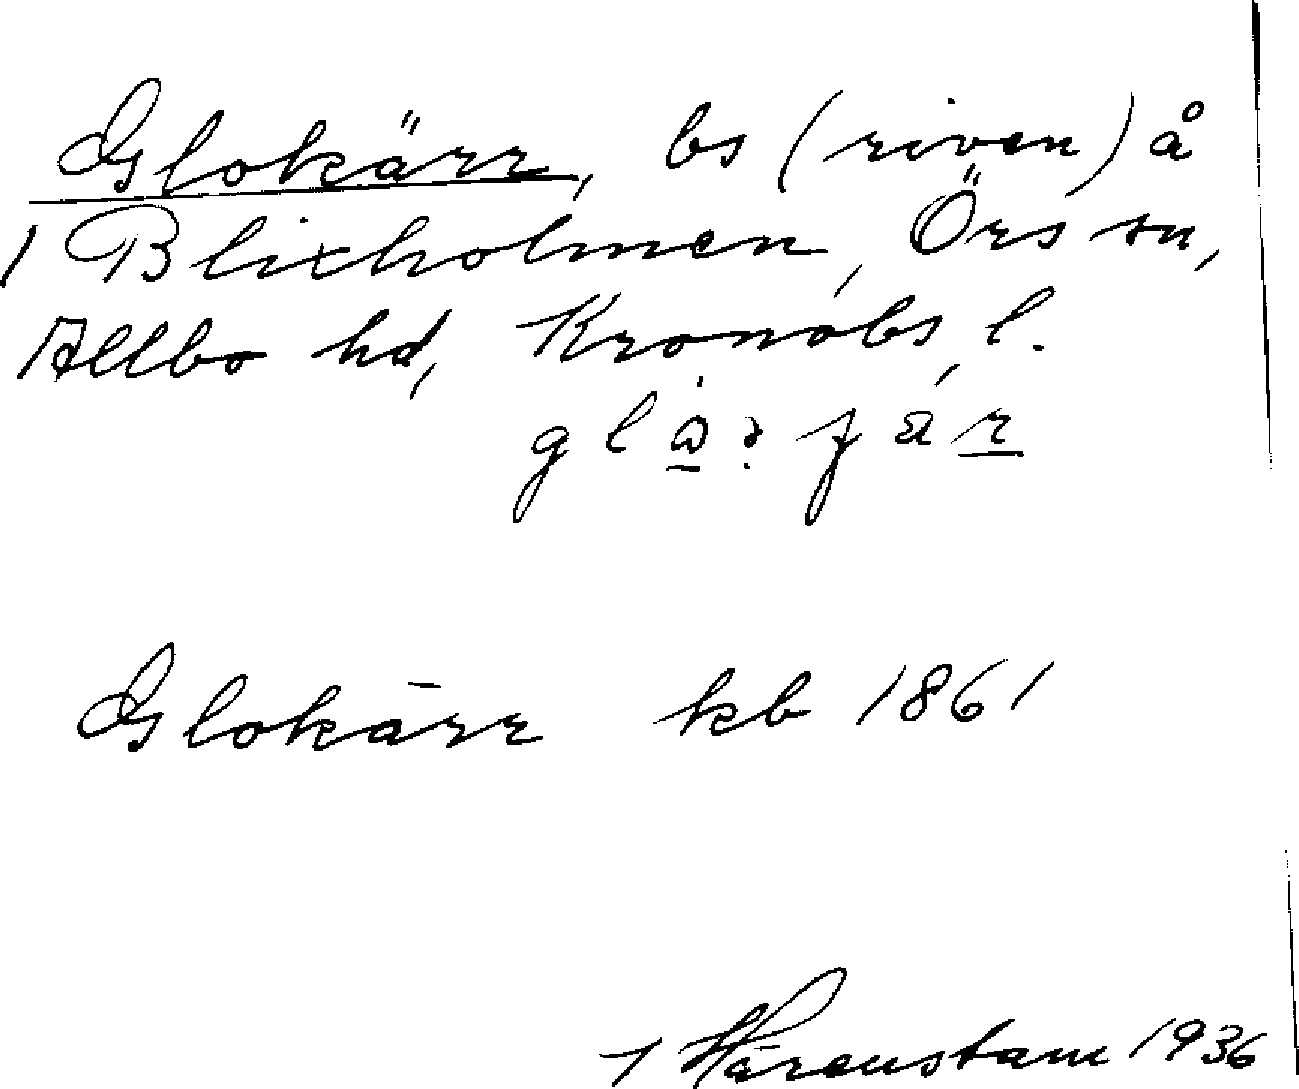 Glokärr, bs (riven) å
1 Blixholmen, Örs sn,
Allbo hd, Kronobs l.
Glokärr kb 1861
1 Härenstam 1936